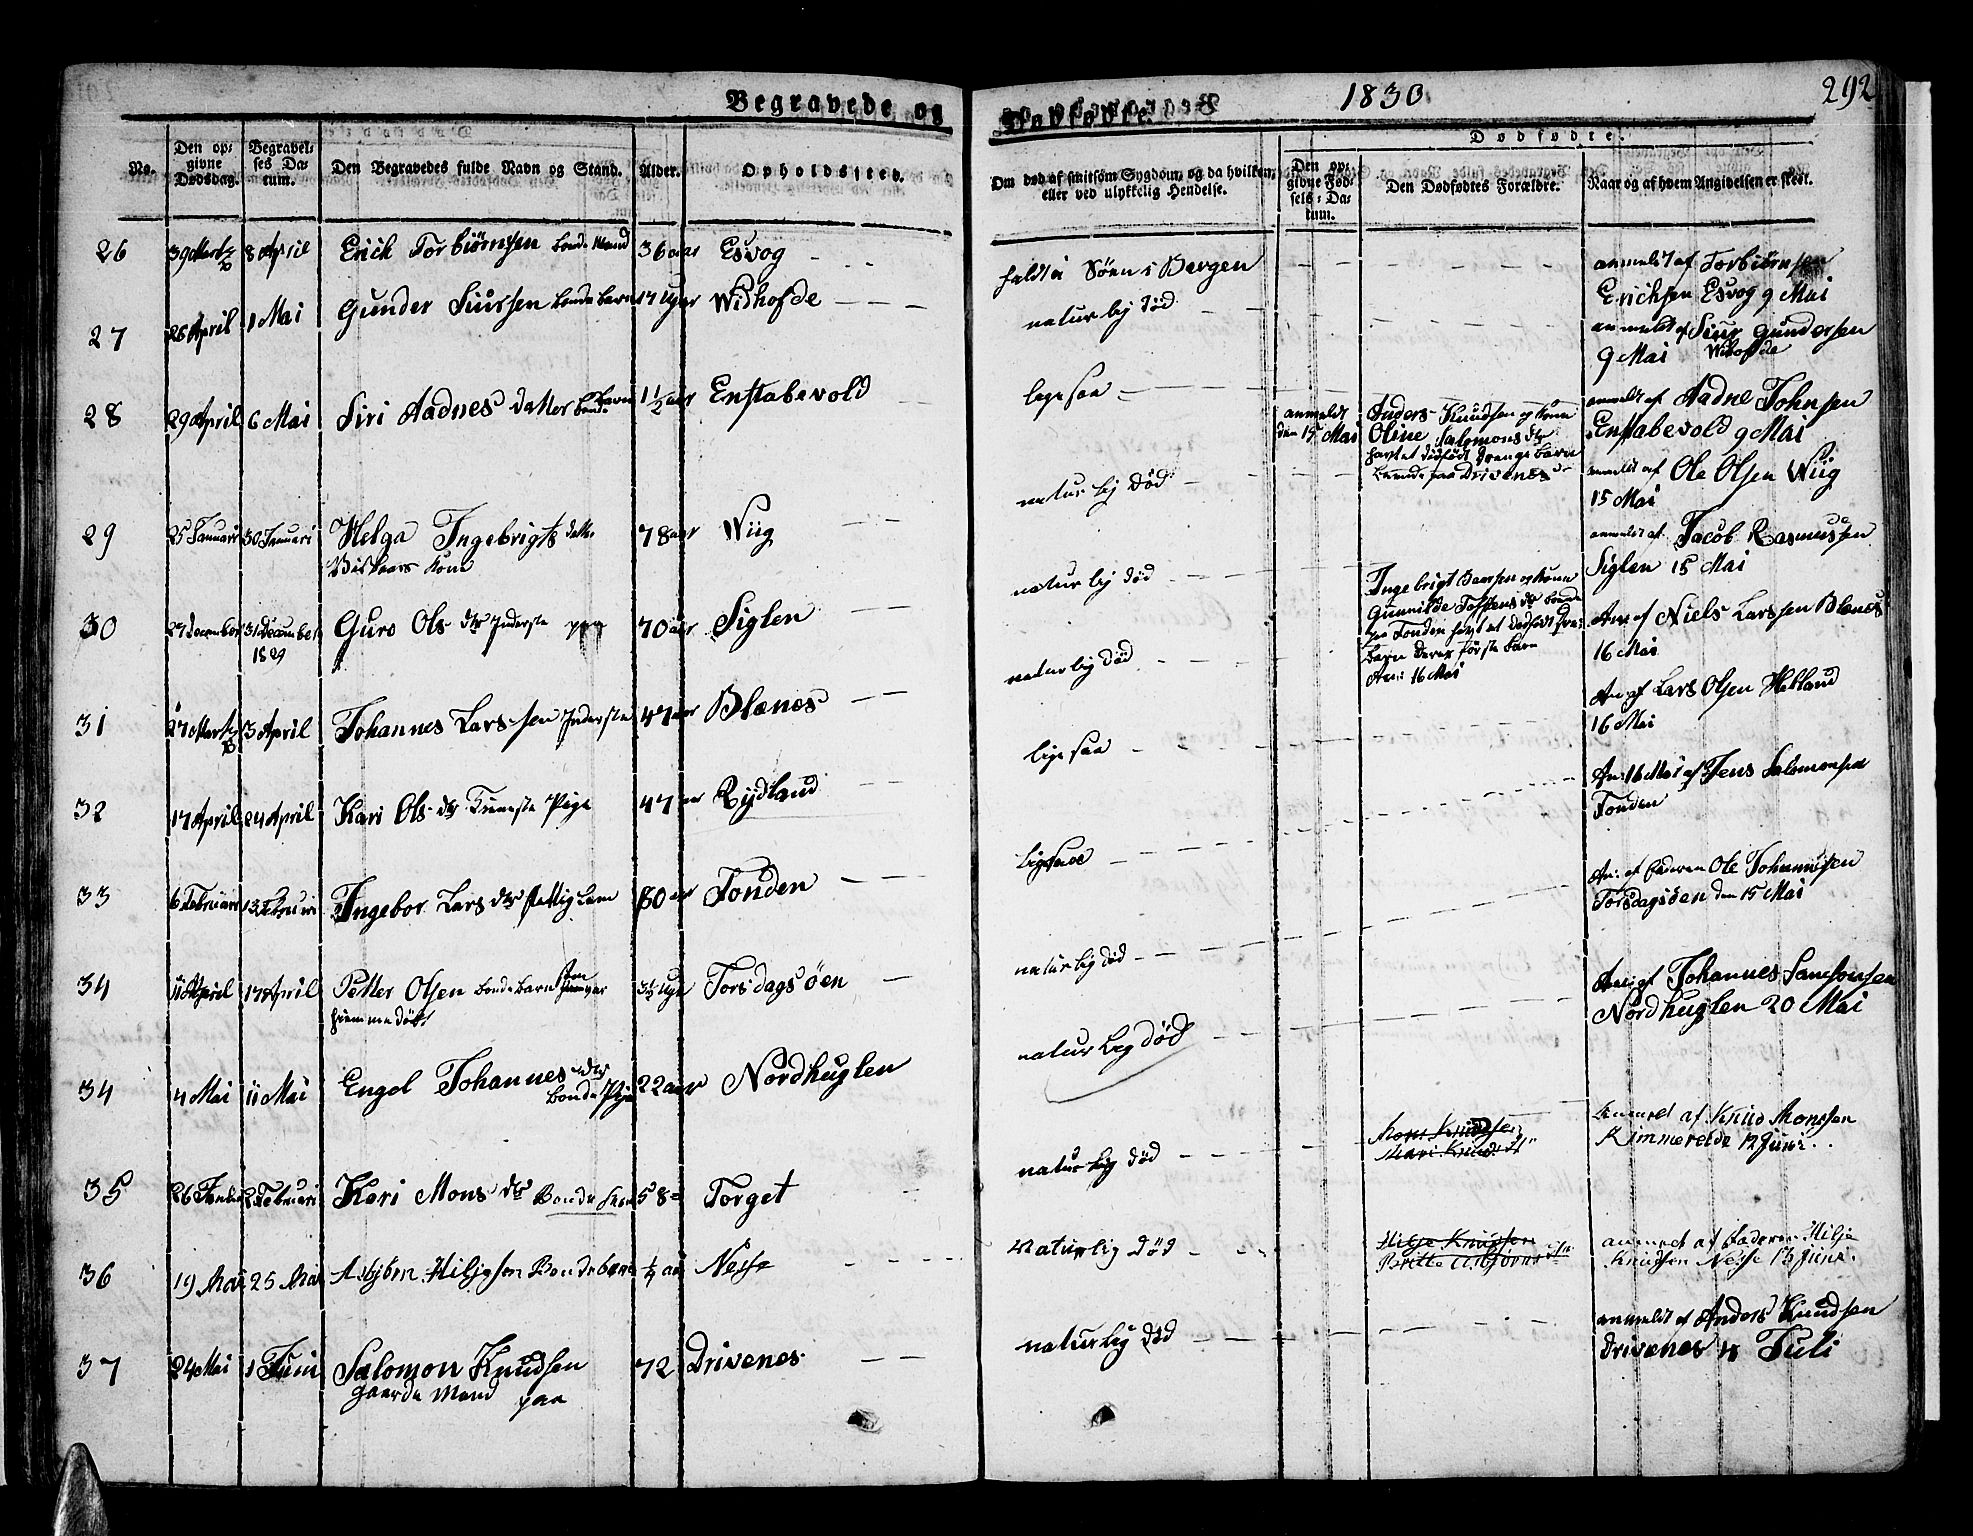 Begravede og Dødfødte. 1830 292
No.
Den op-
givne
Dødsdag.
Begravel-
ses Da-
tum.
Den Begravedes fulde Navn og Stand.
Alder.
Opholdssted.
Om død af smitsom Sygdom, og da hvilken;
eller ved ulykkelig Hendelse.
Dødfødte.
Den op-
givne Fød-
sels-Da-
tum.
Den Dødfødtes Forældre.
Naar og af hvem Angivelsen er skeet.
26 8 April Erich Torbiørnsen bonde Mand 36 aar Esvog
faldt i Søen i Bergen
anmeldt af Torbiørnsen
Erichsen Esvog 9 Mai
27 26 April 1 Mai Gunder Siursen bonde barn 17 Uger Widhofde
naturlig død
anmeldt af Siur Gundersen
9 Mai Wihofde
28 29 April 6 Mai Siri Aadnes datter bonde barn 1½ aar Enstabevold
lige saa
anmeldt
den 15 Mai
Anders Knudsen og Kone
Oline Salomons dtr
havt et dødfødt Drenge barn
boende paa Drivenes
anmeldt af Aadne Johnsen
Enstabevold 9 Mai
29 25 Januari 30 Januari Helga Ingebrigts datter 78 aar Wiig
Kone
naturlig død
anmeldt af Ole Olsen Wiig
15 Mai
30 27 December 31 December Guro Ols dtr Inderste 70 aar Siglen
1829
naturlig død
Ingebrigt og Kone
Gunnilde dtr bonde
paa Tonden havt et dødfødt
barn deres første barn
An: 16 Mai
anmeldt af Jacob Rasmussen
Siglen 15 Mai
31 27 Martz 3 April Johannes Larssen Inderste 47 aar Blænes
naturlig død
An: af Niels Larssen Blænes
16 Mai
32 17 April 24 April Kari Ols dtr Pige 47 aar Rydland
lige saa
An: af Lars Olsen Hekland
16 Mai
33 6 Februari 13 Februari Ingebor Lars dtr fattig Lem 80 aar Tonden
ligesaa
An: 16 Mai af Jens Salomonsen
Tonden
34 11 April 17 April Petter Olsen bonde barn 3½ Uge Torsdagsøen
hiemme døbt
naturlig død
An: af Faderen Ole Johannisen
Torsdagsøen den 15 Mai
34 4 Mai 11 Mai Engel Johannes dtr 22 aar Nordhuglen
bonde Pige
naturlig død
An: af Johannes Samsonsen
Nordhuglen 20 Mai
35 2 Februari Kari Mons dtr Bonde 58 Torget
naturlig død
Mons Knudsen
Mari Knudsdtr
anmed af Knud Monssen
Kimmerelde 12 Juni
36 19 Mai 25 Mai Asbjøn Hiljesen Bondebarn ¼ aar Nesse
Naturlig død
Hilje Knudsen
Britte Asbjørns dtr
anmed af Faderen Hilje
Knudsen Nesse 13 Juni
37 24 Mai 1 Juni Salomon Knudsen 72 Drivenes
gaarde Mand paa
naturlig død
anmeldt af Anders Knudsen
Drivenes Juli